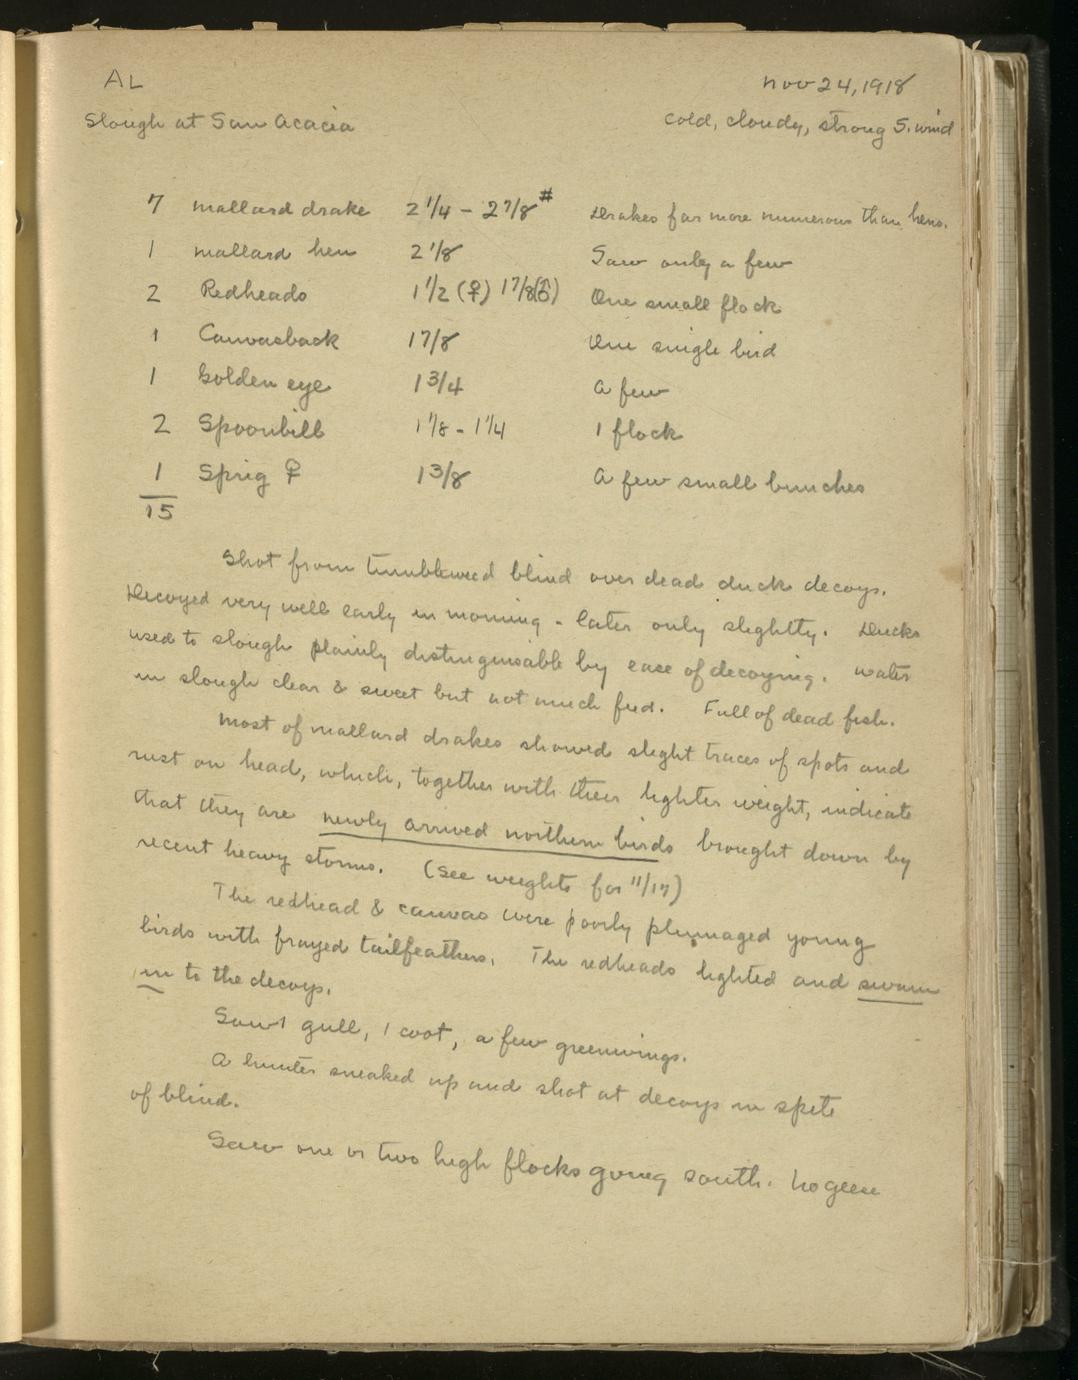 AL
Nov 24, 1918
Slough at San Acacia
Cold, cloudy, strong S. wind
7 Mallard drake 2 1/4 - 2 7/8 # Drakes far more numerous than hens.
1 Mallard hen 2 1/8 Saw only a few
2 Redheads 1 1/2 (♀) 1 7/8 (♂) One small flock
1 Canvasback 1 7/8 One single bird
1 Golden eye 1 3/4 A few
2 Spoonbill 1 1/8 - 1 1/4 1 flock
1 Sprig ♀ 1 3/8 A few small bunches
15
Shot from tumbleweed blind over dead duck decoys.
Decoyed very well early in morning - later only slightly. Ducks
used to slough plainly distinguisable by ease of decoying. Water
in slough clear & sweet but not much feed. Full of dead fish.
Most of mallard drakes showed slight traces of spots and
rust on head, which, together with their lighter weight, indicate
that they are newly arrived northern birds brought down by
recent heavy storms. (See weights for 11/17)
The redhead & canvas were poorly plumaged young
birds with frayed tailfeathers. The redheads lighted and swam
in to the decoys.
Saw 1 gull, 1 coot, a few greenwings.
A hunter sneaked up and shot at decoys in spite
of blind.
Saw one or two high flocks going south. No geese